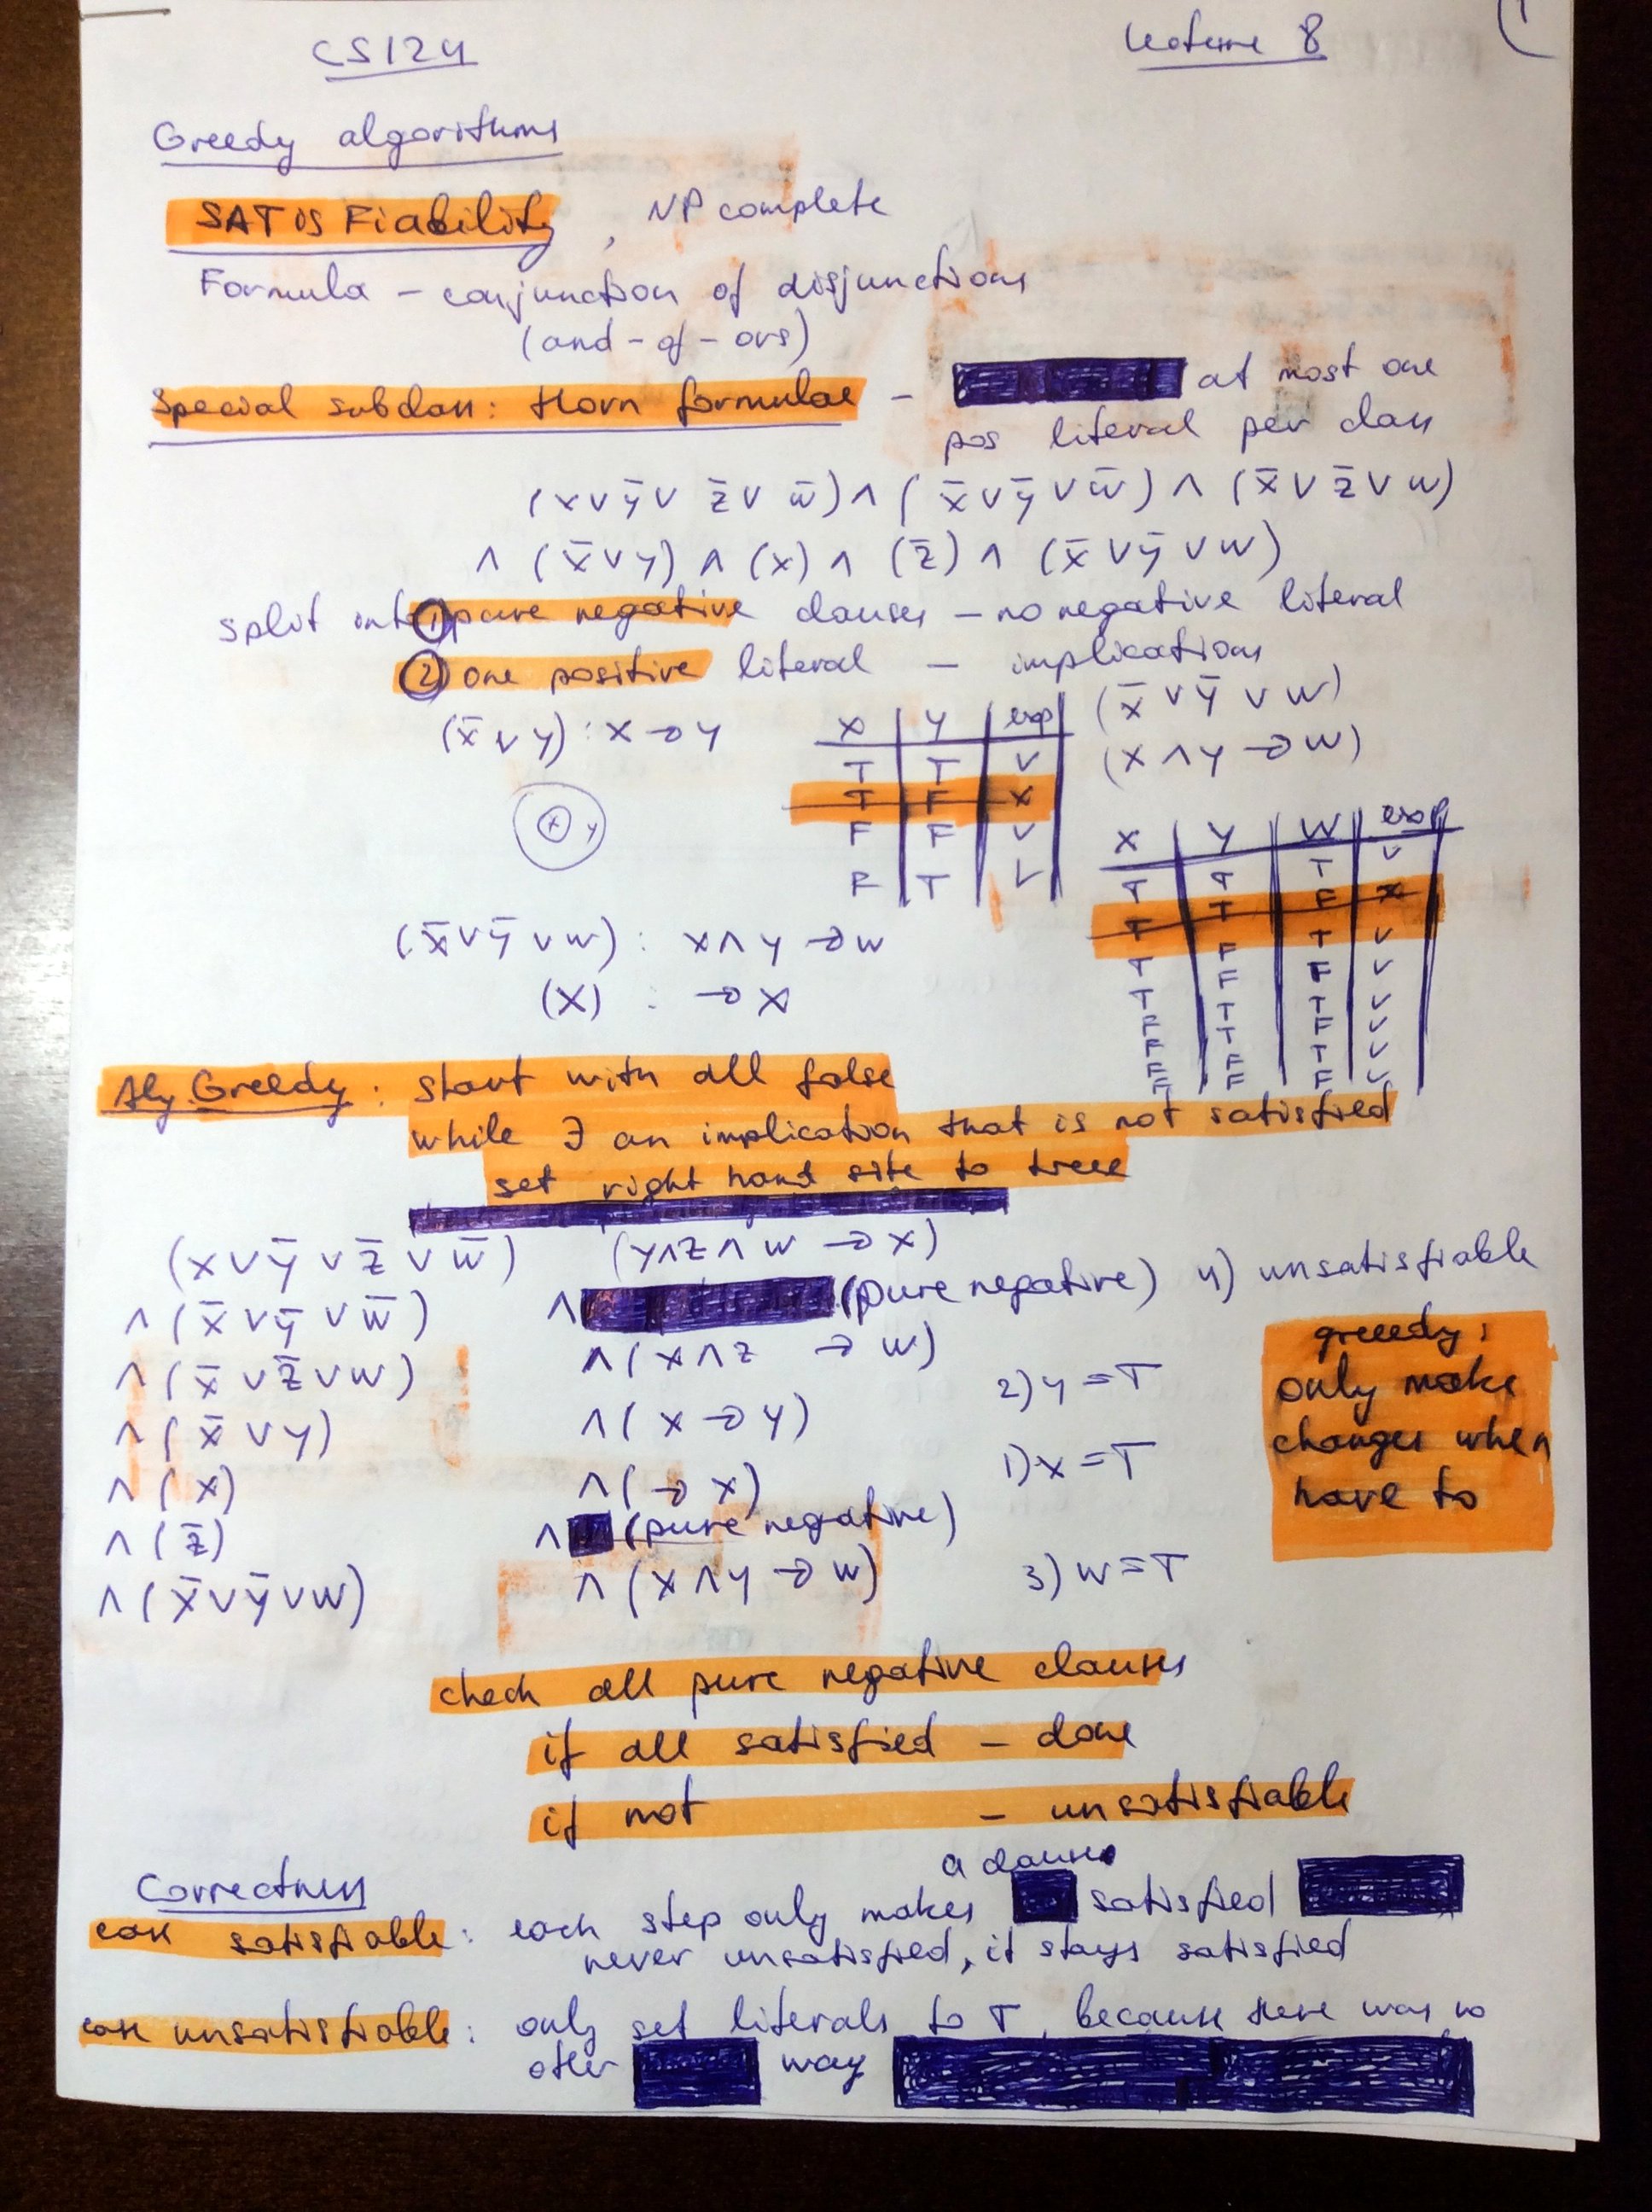 CS124
Lecture 8
Greedy algorithms
SATisFiability, NP complete
Formula – conjunction of disjunctions
(and-of-ors)
Special subclass: Horn formulae – at most one
pos literal per class
(x ∨ ȳ ∨ z̄ ∨ w̄) ∧ (x̄ ∨ ȳ ∨ w̄) ∧ (x̄ ∨ z̄ ∨ w)
∧ (x̄ ∨ y) ∧ (x) ∧ (z̄) ∧ (x̄ ∨ ȳ ∨ w)
split into ① pure negative clauses – no negative literal
② one positive literal – implications
(x̄ ∨ y) : x → y
x y exp
T T V
T F X
F F V
F T V
(x̄ ∨ ȳ ∨ w)
(x ∧ y → w)
x y
x y w exp
T T T V
T T F X
T F T V
T F F V
F T T V
F T F V
F F T V
F F F V
(x̄ ∨ ȳ ∨ w) : x ∧ y → w
(x) : → x
Alg Greedy: start with all false
while ∃ an implication that is not satisfied
set right hand site to true
(x ∨ ȳ ∨ z̄ ∨ w̄) (y ∧ z ∧ w → x)
∧ (x̄ ∨ ȳ ∨ w̄) ∧ (pure negative) 4) unsatisfiable
∧ (x̄ ∨ z̄ ∨ w) ∧ (x ∧ z → w)
∧ (x̄ ∨ y) ∧ (x → y) 2) y = T
∧ (x) ∧ (→ x) 1) x = T
∧ (z̄) ∧ (pure negative)
∧ (x̄ ∨ ȳ ∨ w) ∧ (x ∧ y → w) 3) w = T
greeedy:
only make
changes when
have to
check all pure negative clauses
if all satisfied – done
if not – unsatisfiable
Correctness
a clause
case satisfiable: each step only makes satisfied
never unsatisfied, it stays satisfied
case unsatisfiable: only set literals to T, because there was no
other way